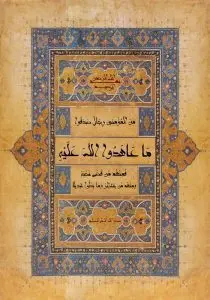 بسم الله الرحمن
الرحيم
من المؤمنين رجال صدقوا
ما عاهدوا الله عليه
فمنهم من قضى نحبه
ومنهم من ينتظر وما بدلوا تبديلا